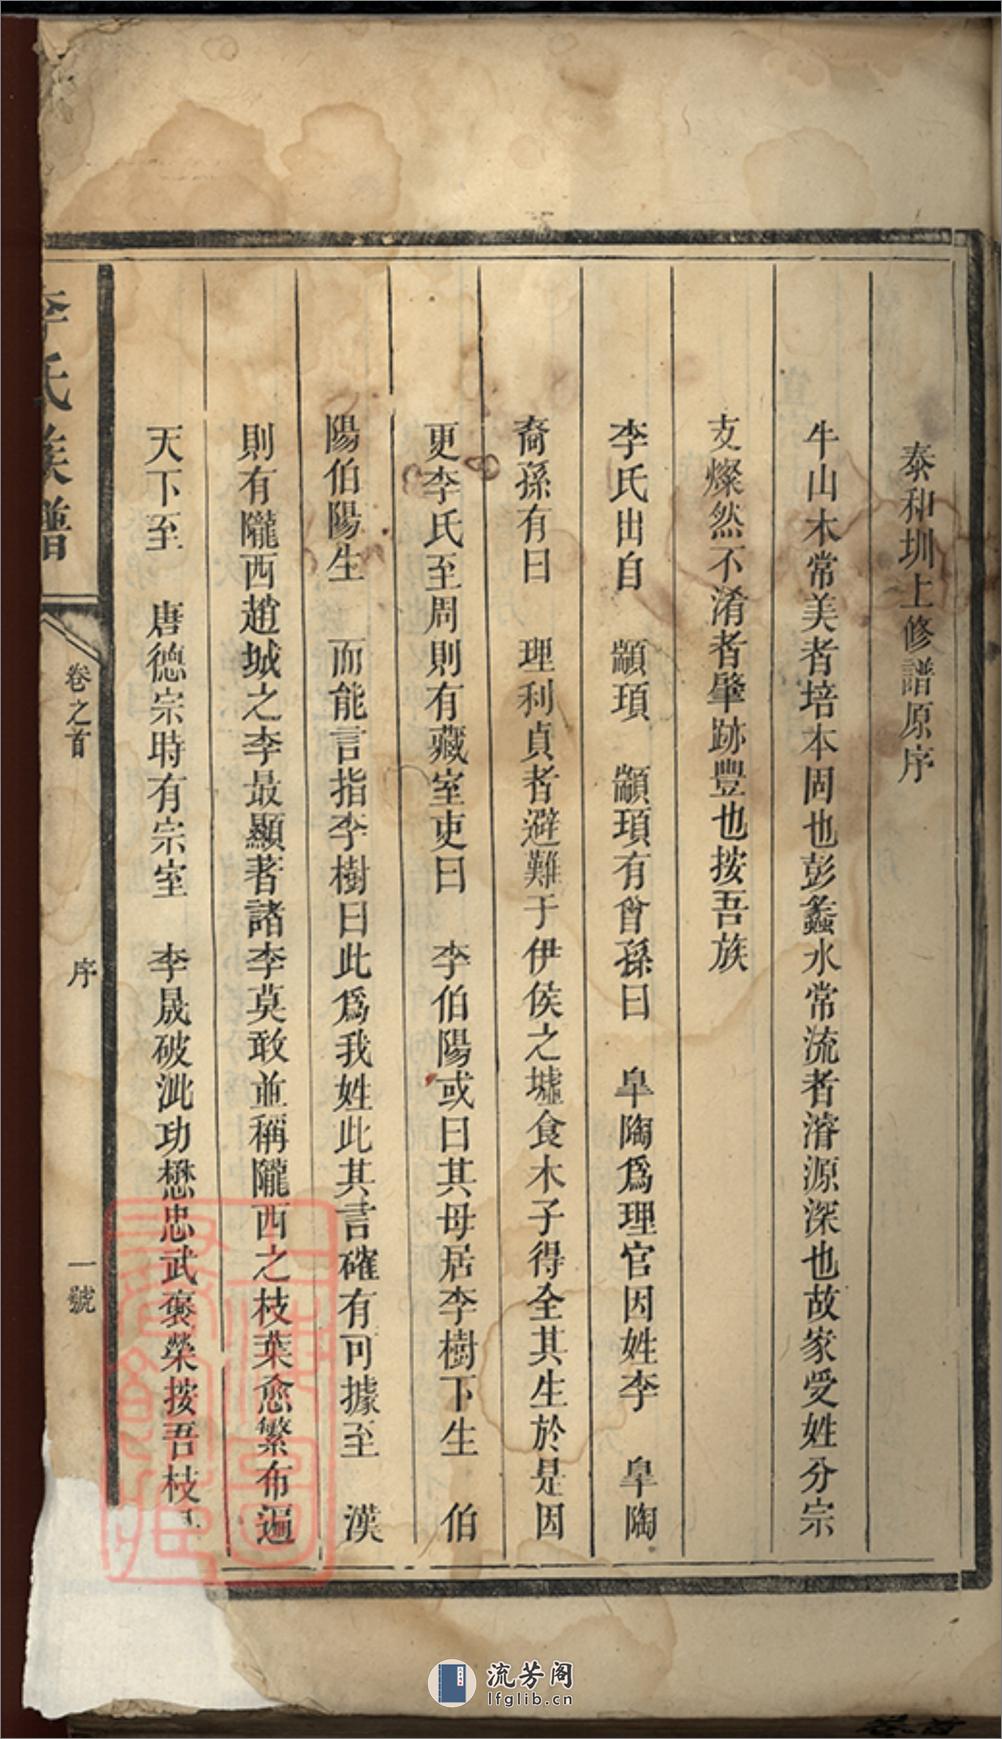 泰和圳上修譜原序
牛山木常美者培本固也彭蠡水常流者濬源深也故家受姓分宗
支燦然不淆者肇跡豐也按吾族
李氏出自 顓頊 顓頊有曾孫曰 臯陶爲理官因姓李 臯陶
裔孫有曰 理利貞者避難于伊侯之墟食木子得全其生於是因
更李氏至周則有藏室吏曰 李伯陽或曰其母居李樹下生 伯
陽伯陽生 而能言指李樹曰此爲我姓此其言確有可據至 漢
則有隴西趙城之李最顯著諸李莫敢並稱隴西之枝葉愈繁布遍
天下至 唐德宗時有宗室 李晟破泚功懋忠武褒榮按吾枝
李氏族譜
卷之首 序 一號
流芳阁
lfglib.cn